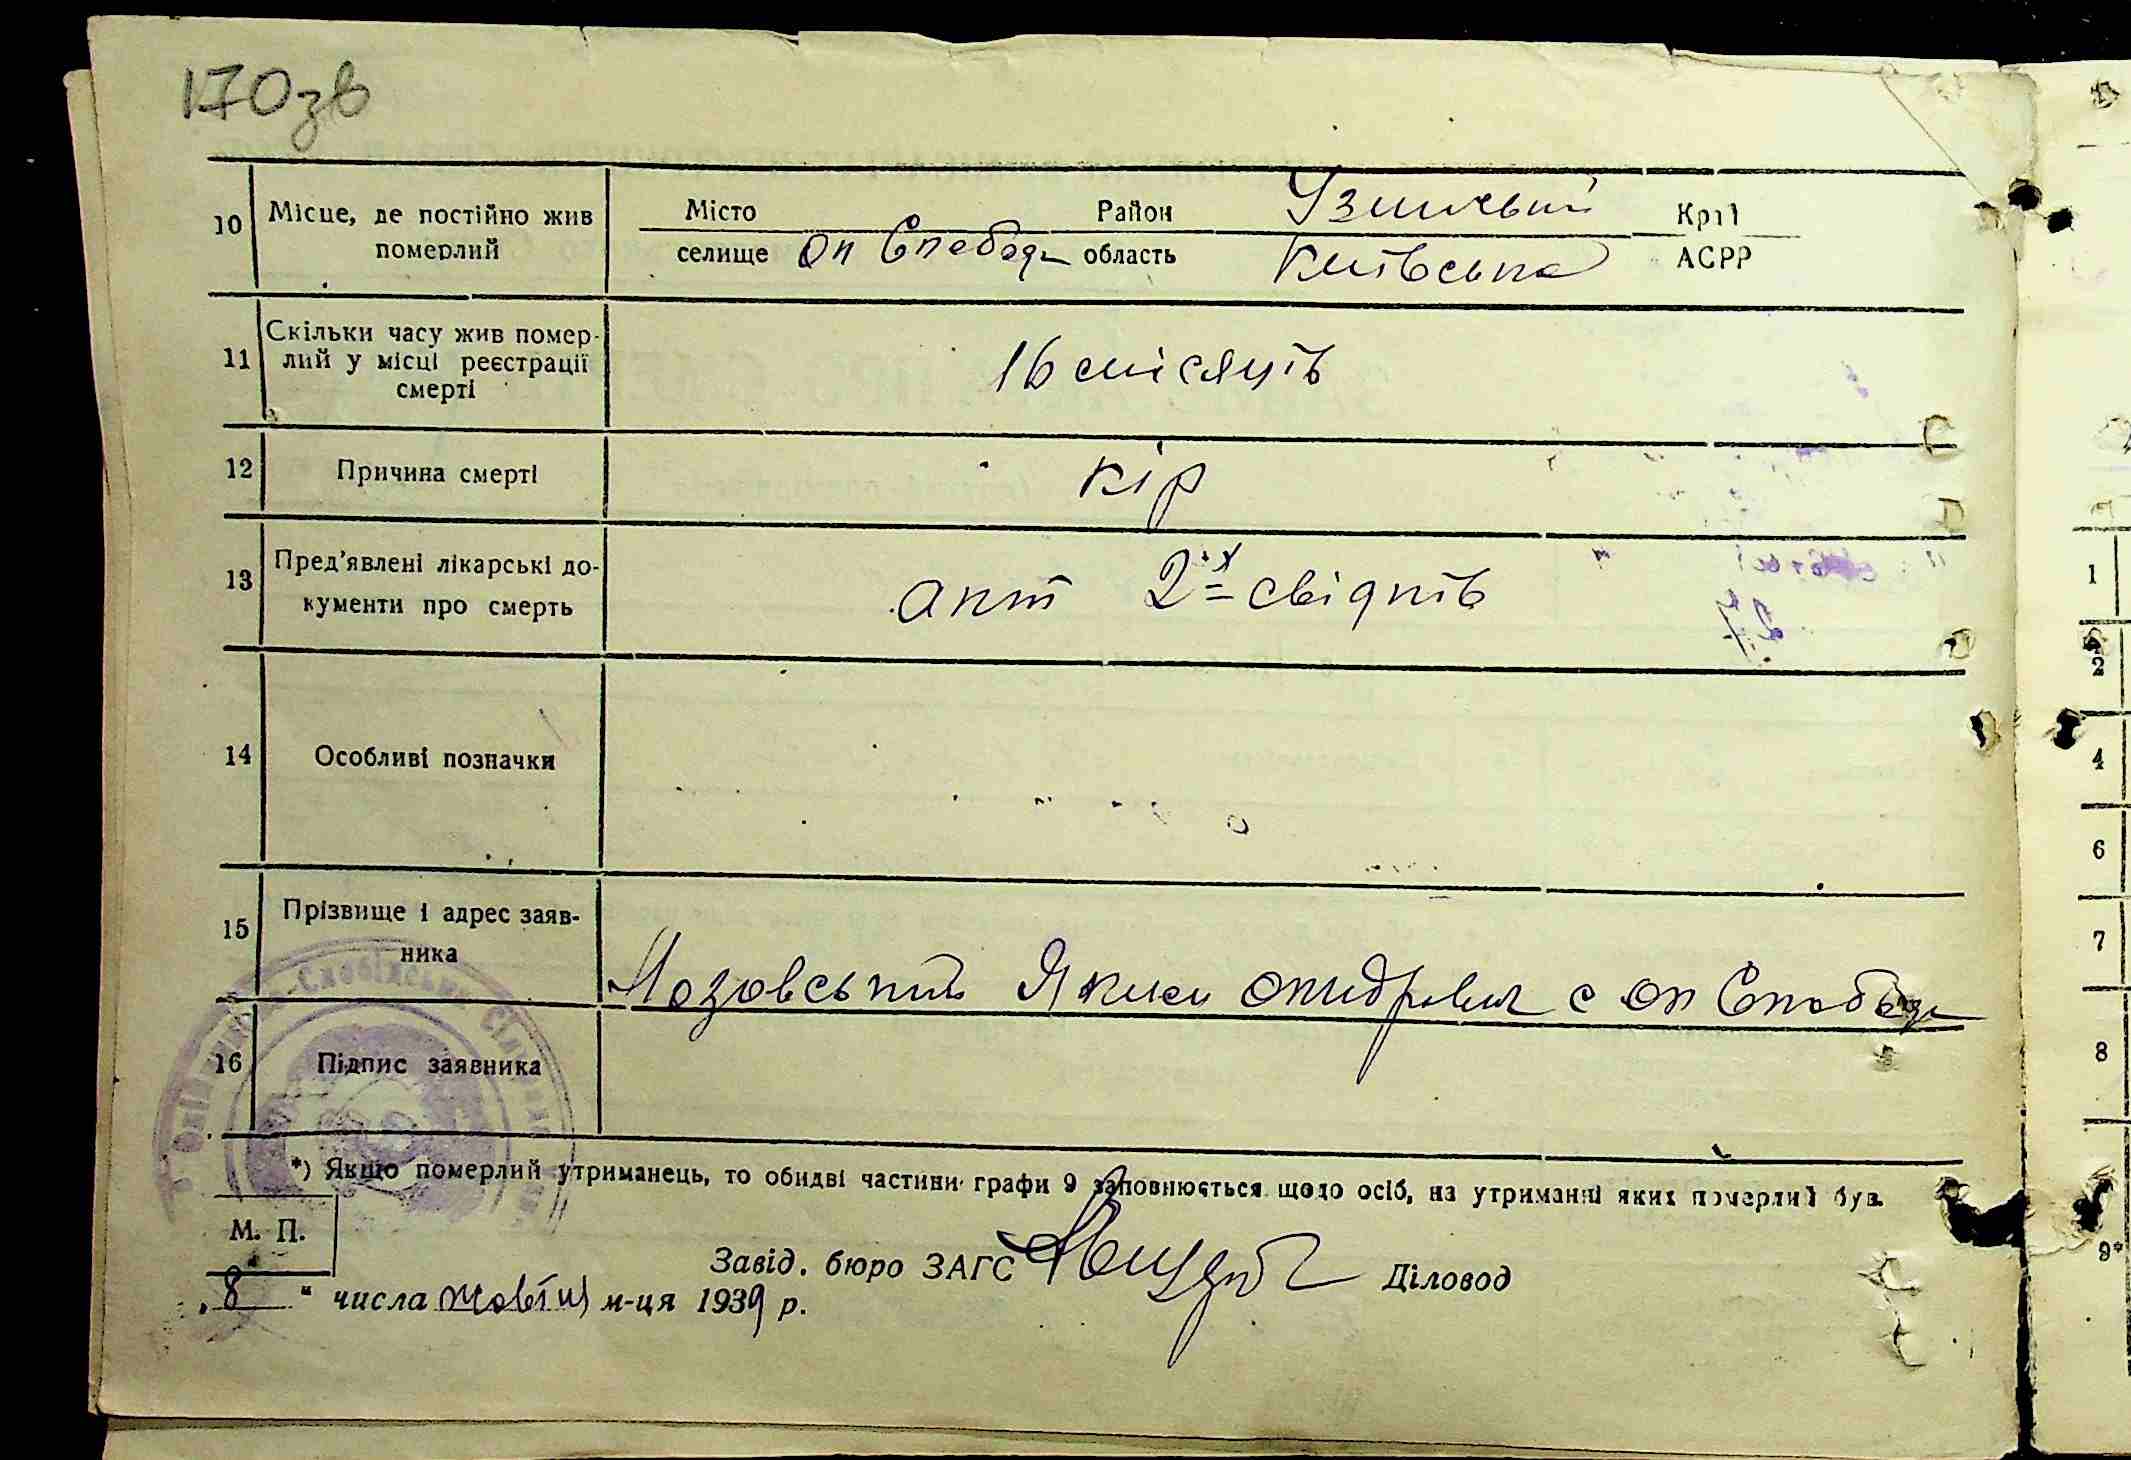 170зв
10 Місце, де постійно жив померлий
Місто Район Узинський Крїї
селище Оп Слобода область Київська АСРР
11 Скільки часу жив помер-
лий у місці реєстрації
смерті
16 місяців
12 Причина смерті кір
13 Пред'явлені лікарські до-
кументи про смерть
акт 2-х свідків
14 Особливі позначки
15 Прізвище і адрес заяв-
ника
Мозовський Яким с Оп Слобода
16 Підпис заявника
*) Якщо померлий утриманець, то обидві частини графи 9 заповнюється щодо осіб, на утриманні яких померлий був.
М. П.
Завід. бюро ЗАГС Діловод
„8“ числа жовтня м-ця 1939 р.
1
2
4
6
7
8
9*